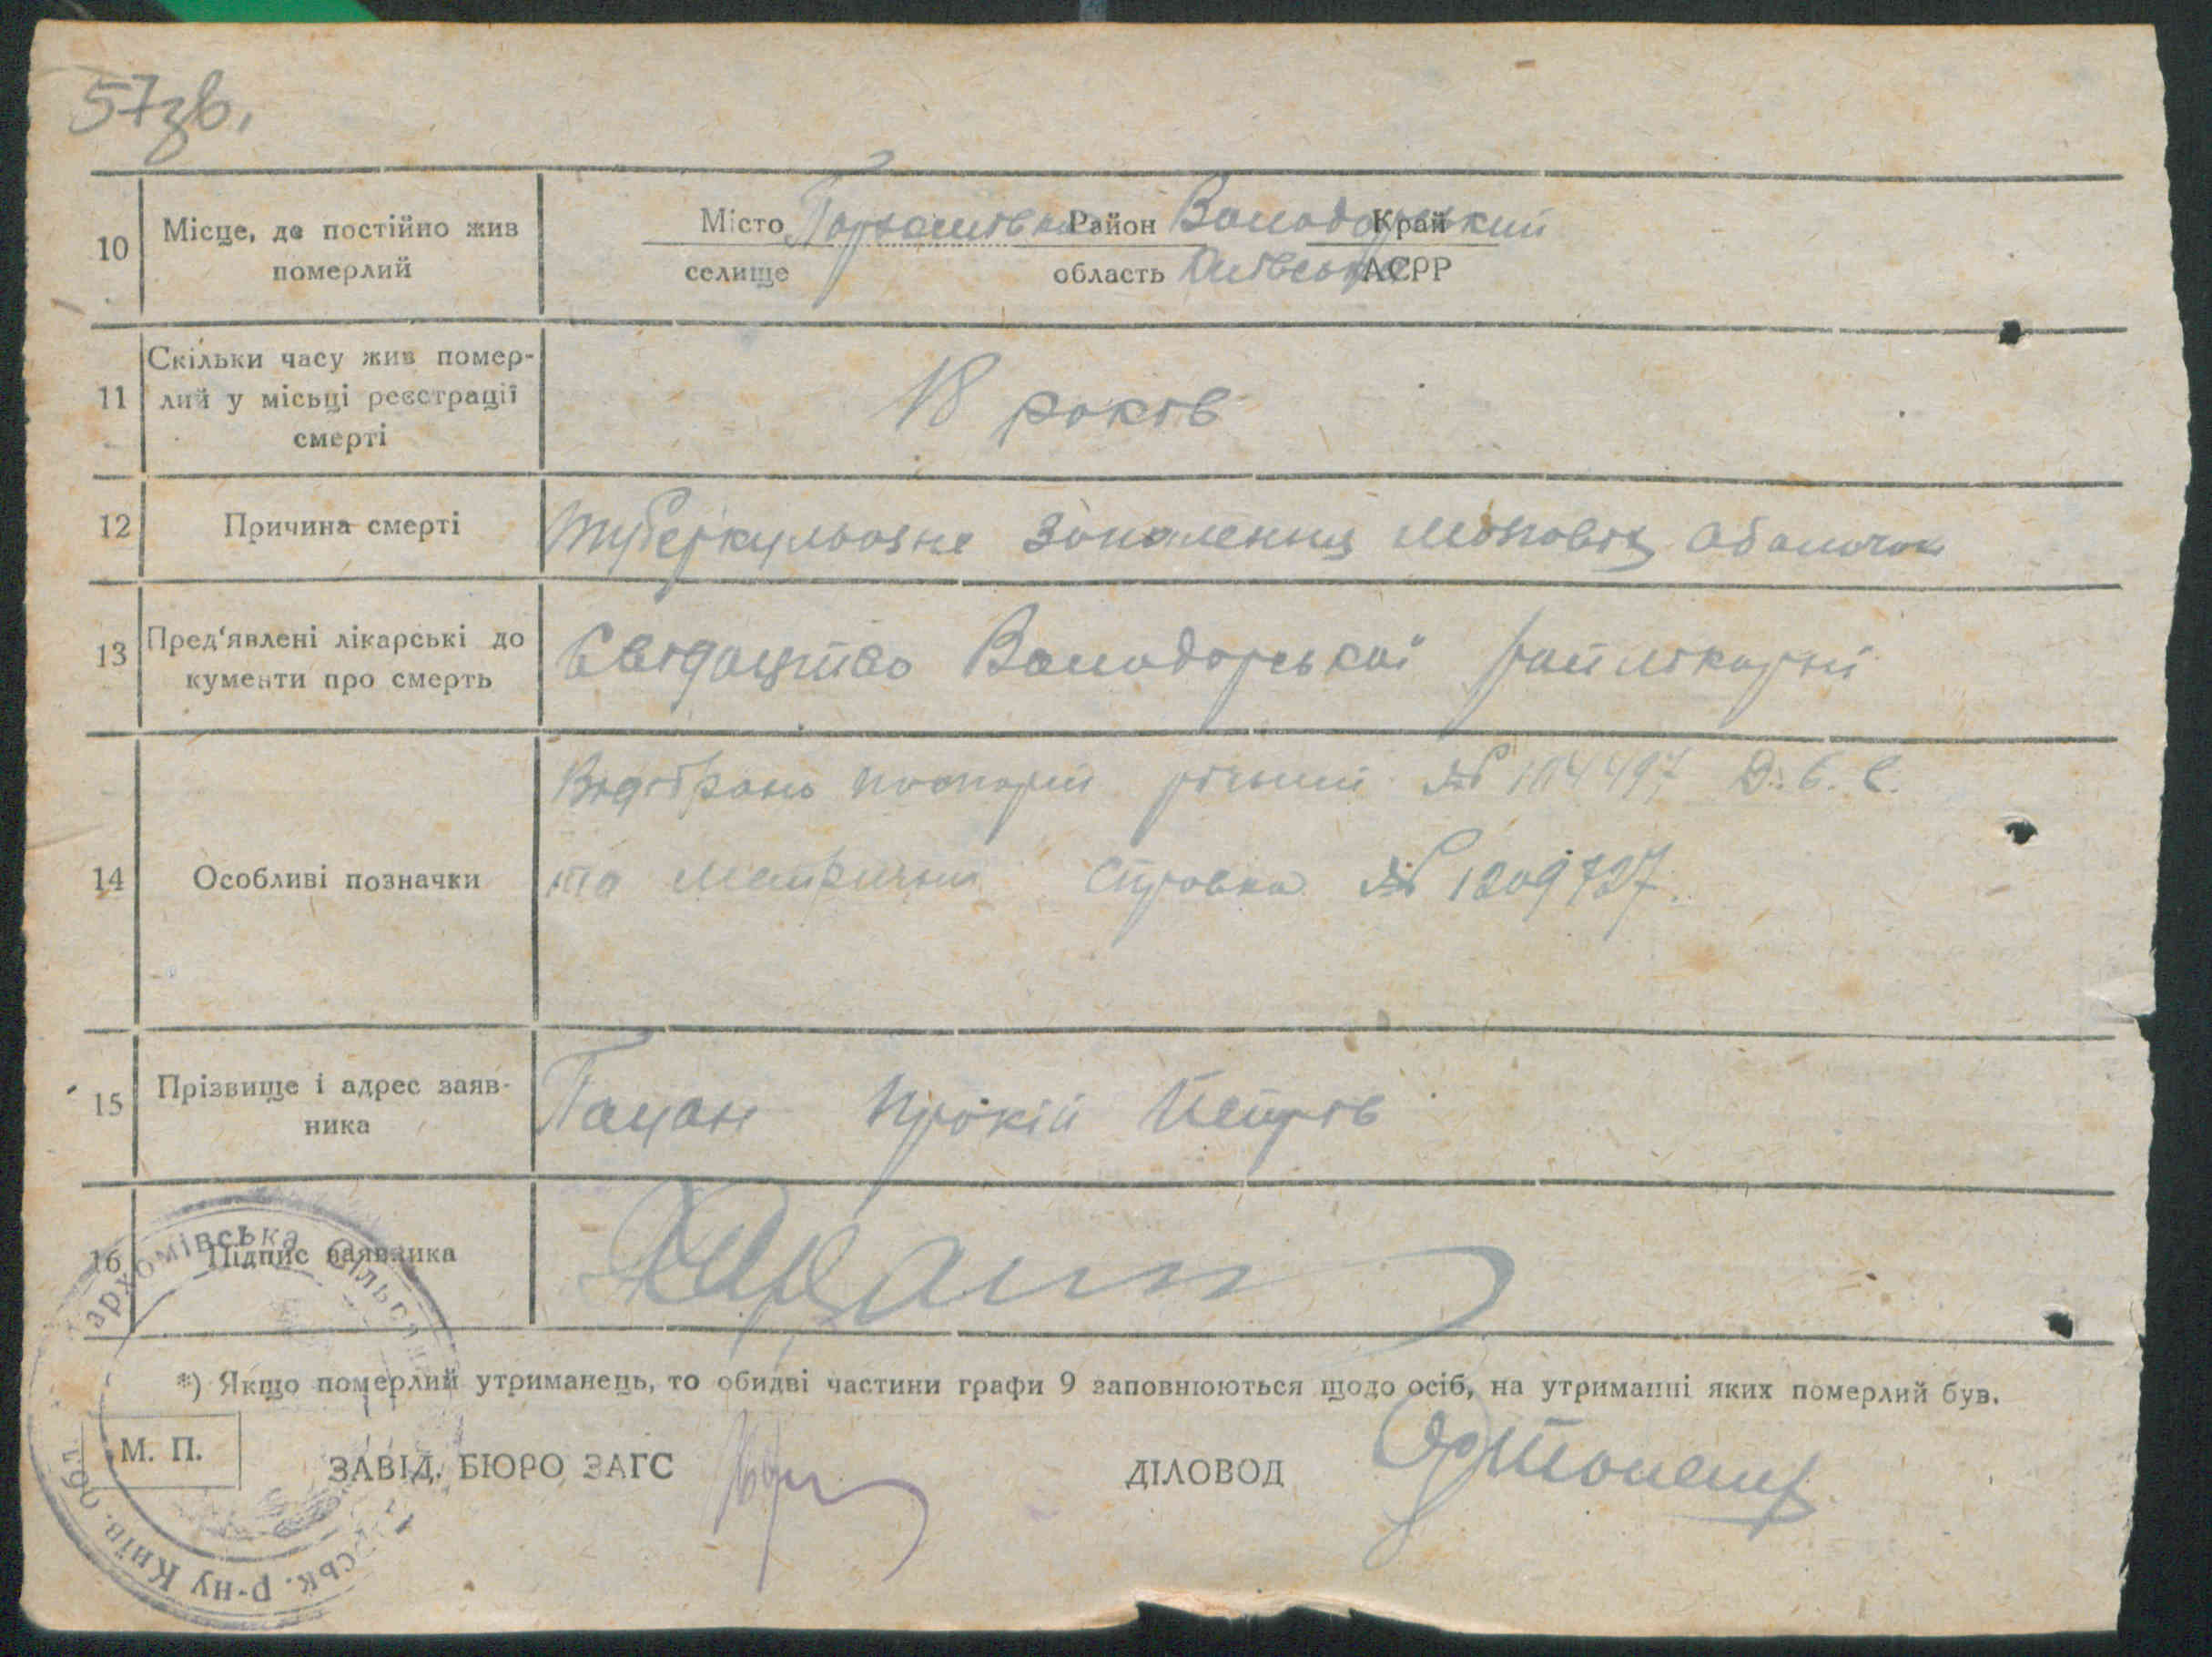 57зв.
10 Місце, де постійно жив померлий
Місто Пархомівка Район Володарський Край
селище область Київська АСРР
11 Скільки часу жив помер-
лий у місьці реєстрації
смерті
18 років
12 Причина смерті
Туберкульозне запалення мозкових оболочок
13 Пред'явлені лікарські до
кументи про смерть
Свідоцтво Володарської райлікарні
14 Особливі позначки
Відібрано пашпорт № 104497
та метричну справка № 1209727.
15 Прізвище і адрес заяв-
ника
Пацан Прокіп Петрів
16 Підпис заявника
*) Якщо померлий утриманець, то обидві частини графи 9 заповнюються щодо осіб, на утриманні яких померлий був.
М. П.
ЗАВІД. БЮРО ЗАГС
ДІЛОВОД
архомівська Сільсь
ськ. р-ну Київ. обл.